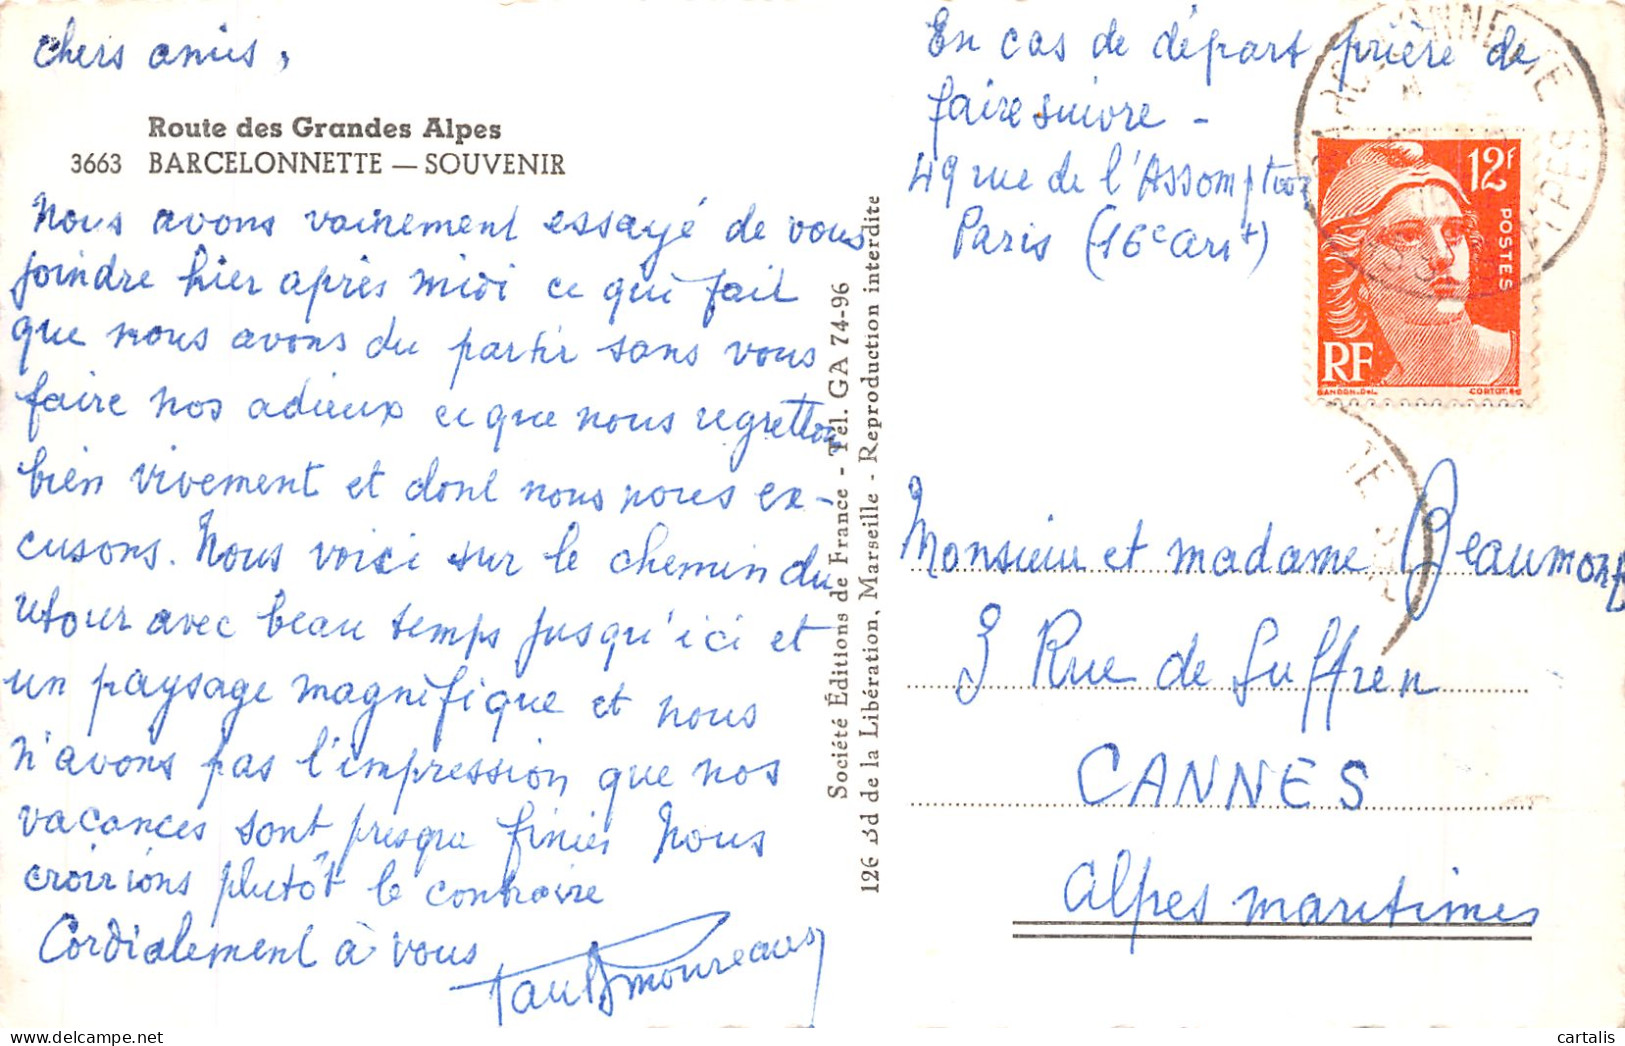 chers amis,
Route des Grandes Alpes
3663 BARCELONNETTE — SOUVENIR
Nous avons vainement essayé de vous
joindre hier après midi ce qui fait
que nous avons du partir sans vous
faire nos adieux ce que nous regrettons
bien vivement et dont nous nous ex-
cusons. Nous voici sur le chemin du
retour avec beau temps jusqu'ici et
un paysage magnifique et nous
n'avons pas l'impression que nos
vacances sont presque finies Nous
croirions plutôt le contraire
Cordialement à vous
Société Éditions de France - Tél. GA 74-96
126 Bd de la Libération, Marseille - Reproduction interdite
En cas de départ prière de
faire suivre -
49 rue de l'Assomption
Paris (16e arrt)
12f
POSTES
RF
GANDON.DEL.
Monsieur et madame Beaumont
3 Rue de Suffren
CANNES
Alpes maritimes
cartalis